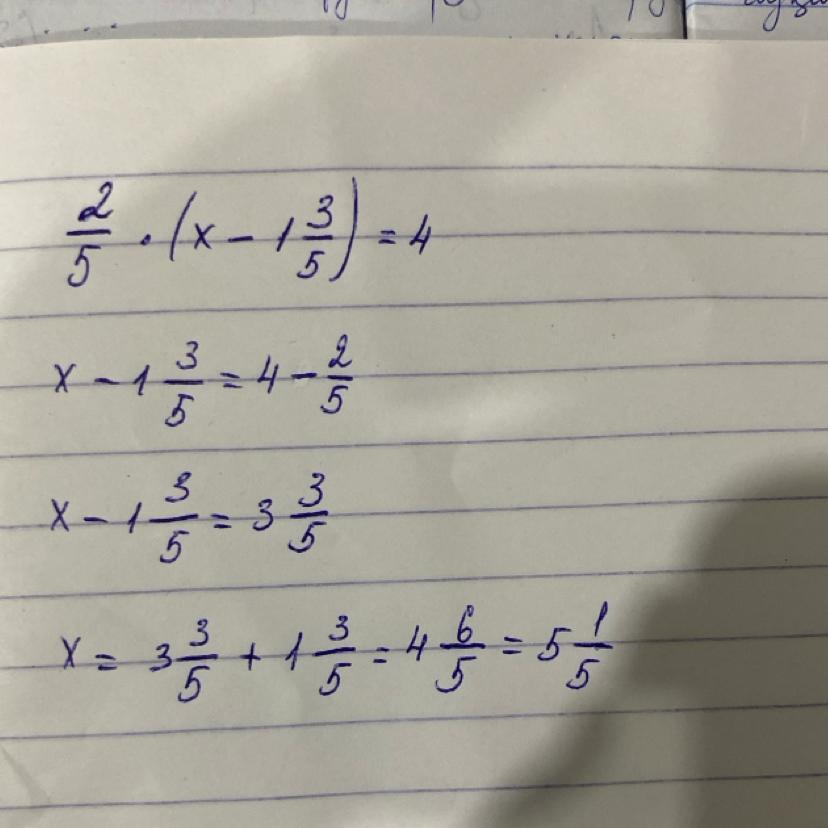 2/5 · (x − 1 3/5) = 4
x − 1 3/5 = 4 − 2/5
x − 1 3/5 = 3 3/5
x = 3 3/5 + 1 3/5 = 4 6/5 = 5 1/5